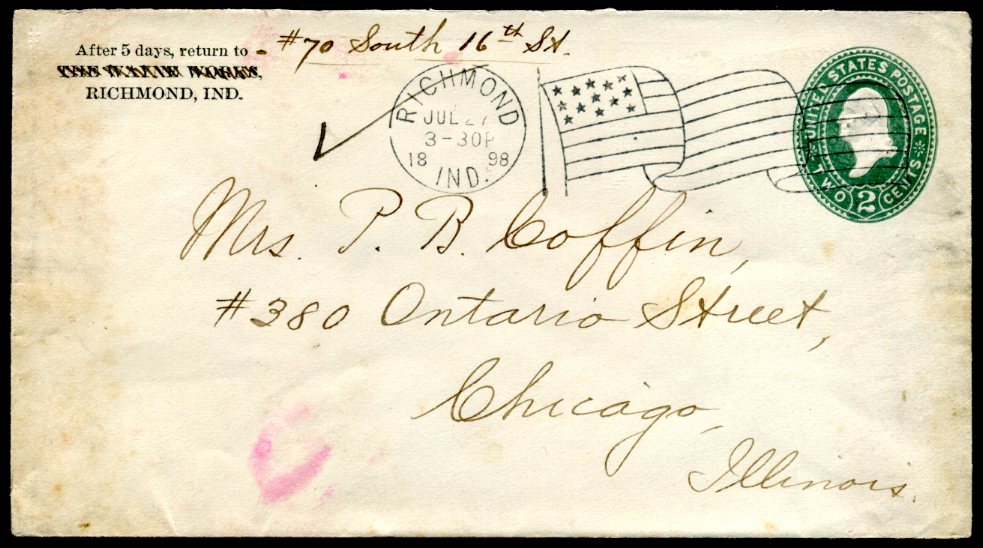 After 5 days, return to - #70 South 16th St.
RICHMOND, IND.
RICHMOND
JUL 27
3-30P
18 98
IND.
UNITED STATES POSTAGE
TWO 2 CENTS
Mrs. P. B. Coffin,
#380 Ontario Street,
Chicago,
Illinois.